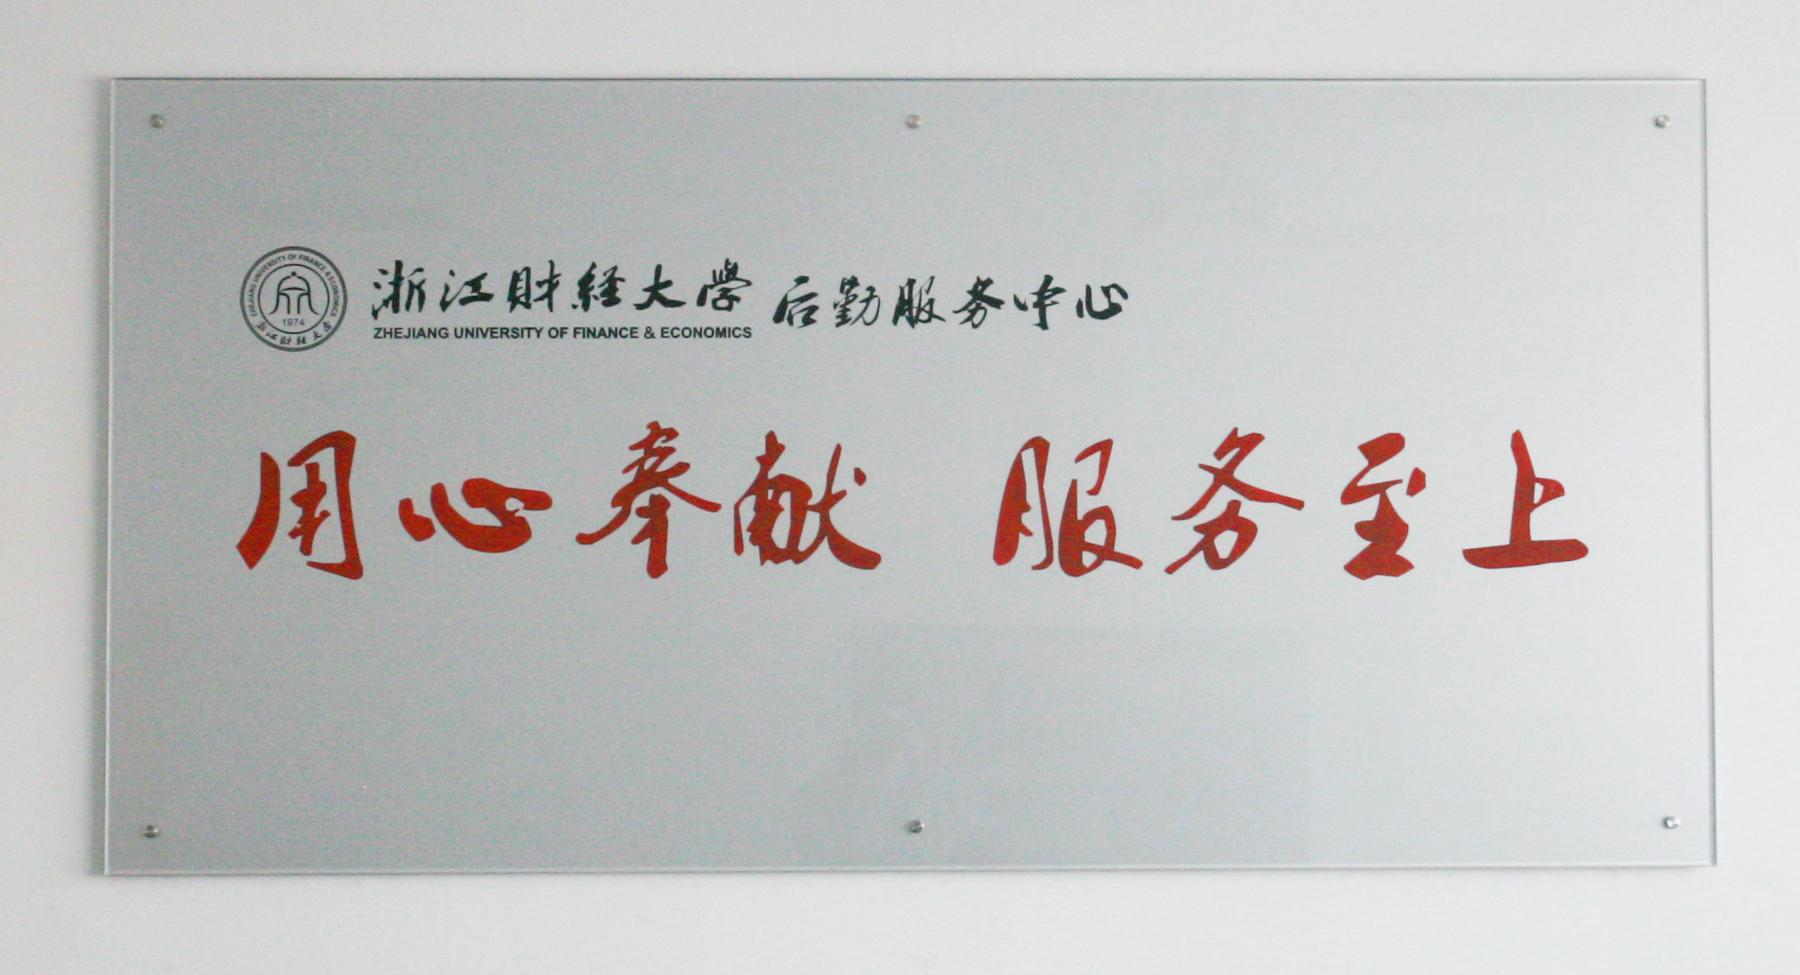 浙江財経大學 后勤服务中心
ZHEJIANG UNIVERSITY OF FINANCE & ECONOMICS
ZHEJIANG UNIVERSITY OF FINANCE & ECONOMICS
1974
浙江財経大學
用心奉献 服务至上